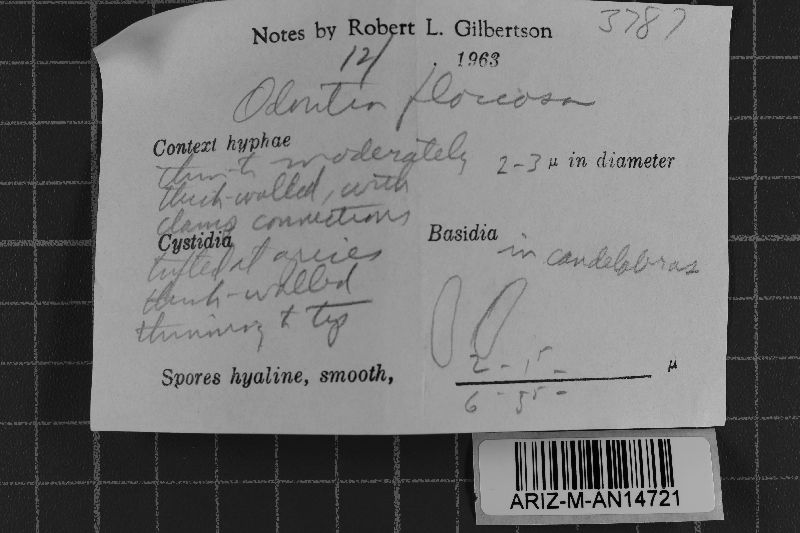 Notes by Robert L. Gilbertson 3787
12/ , 1963
Odontia floccosa
Context hyphae
thin- to moderately 2-3 µ in diameter
thick-walled, with
clamp connections
Cystidia Basidia
tufted at apices in candelabras
thick-walled
thinning to tip
Spores hyaline, smooth, µ
2 - 15 -
6 - 35 -
ARIZ-M-AN14721